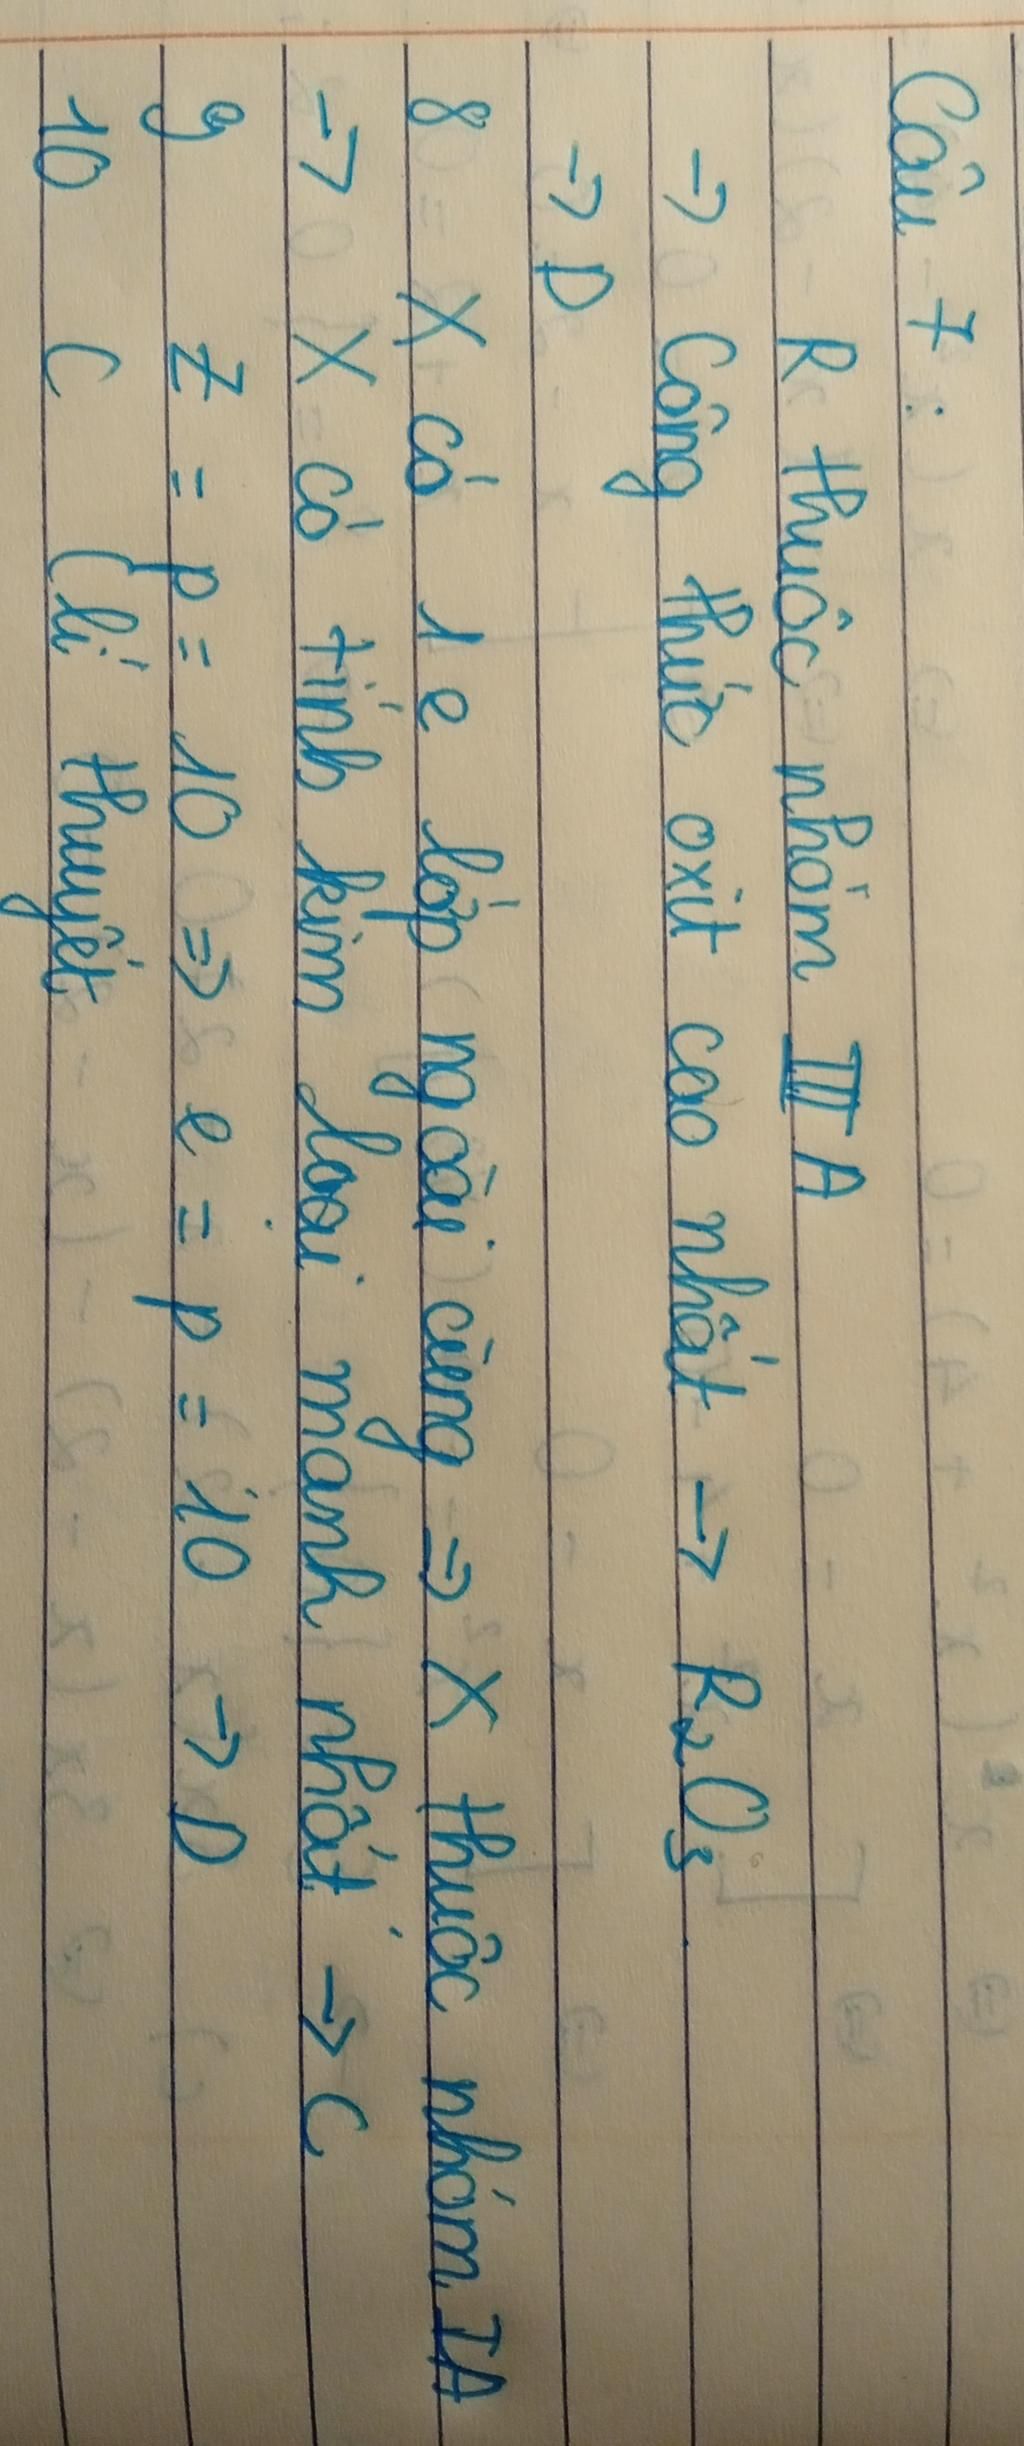 Câu 7:
R thuộc nhóm III A
-> Công thức oxit cao nhất -> R2O3
-> D
8 X có 1 e lớp ngoài cùng => X thuộc nhóm IA
-> X có tính kim loại mạnh nhất -> C
9 Z = p = 10 => e = p = 10 -> D
10 C (lí thuyết